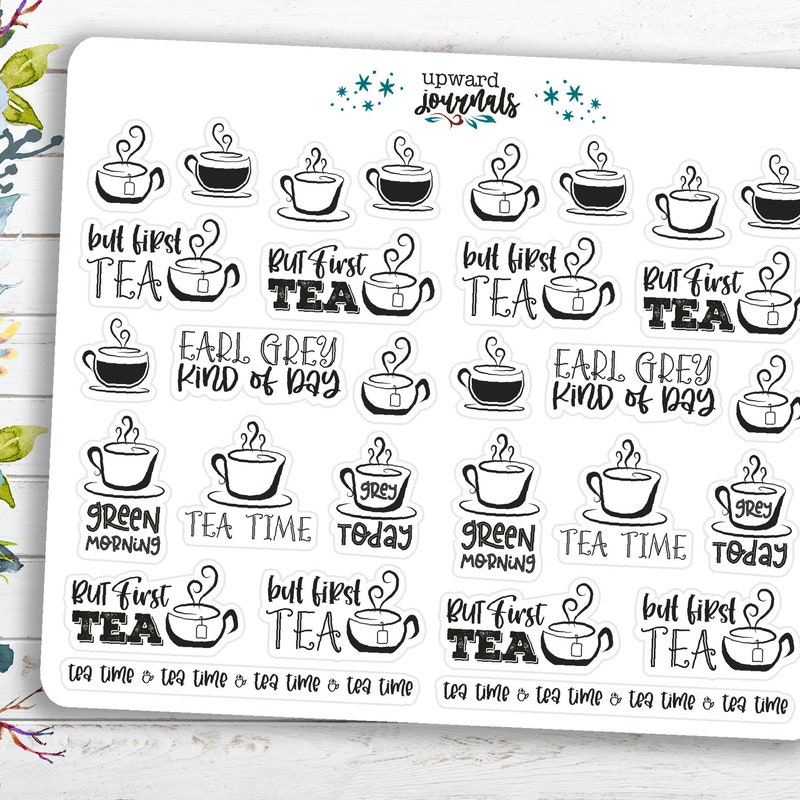 upward
journals
but first
TEA
But First
TEA
but first
TEA
But First
TEA
EARL GREY
Kind of Day
EARL GREY
Kind of Day
green
morning
TEA TIME
GREY
TODAY
green
morning
TEA TIME
GREY
TODAY
But First
TEA
but first
TEA
But First
TEA
but first
TEA
tea time tea time tea time tea time
tea time tea time tea time tea time